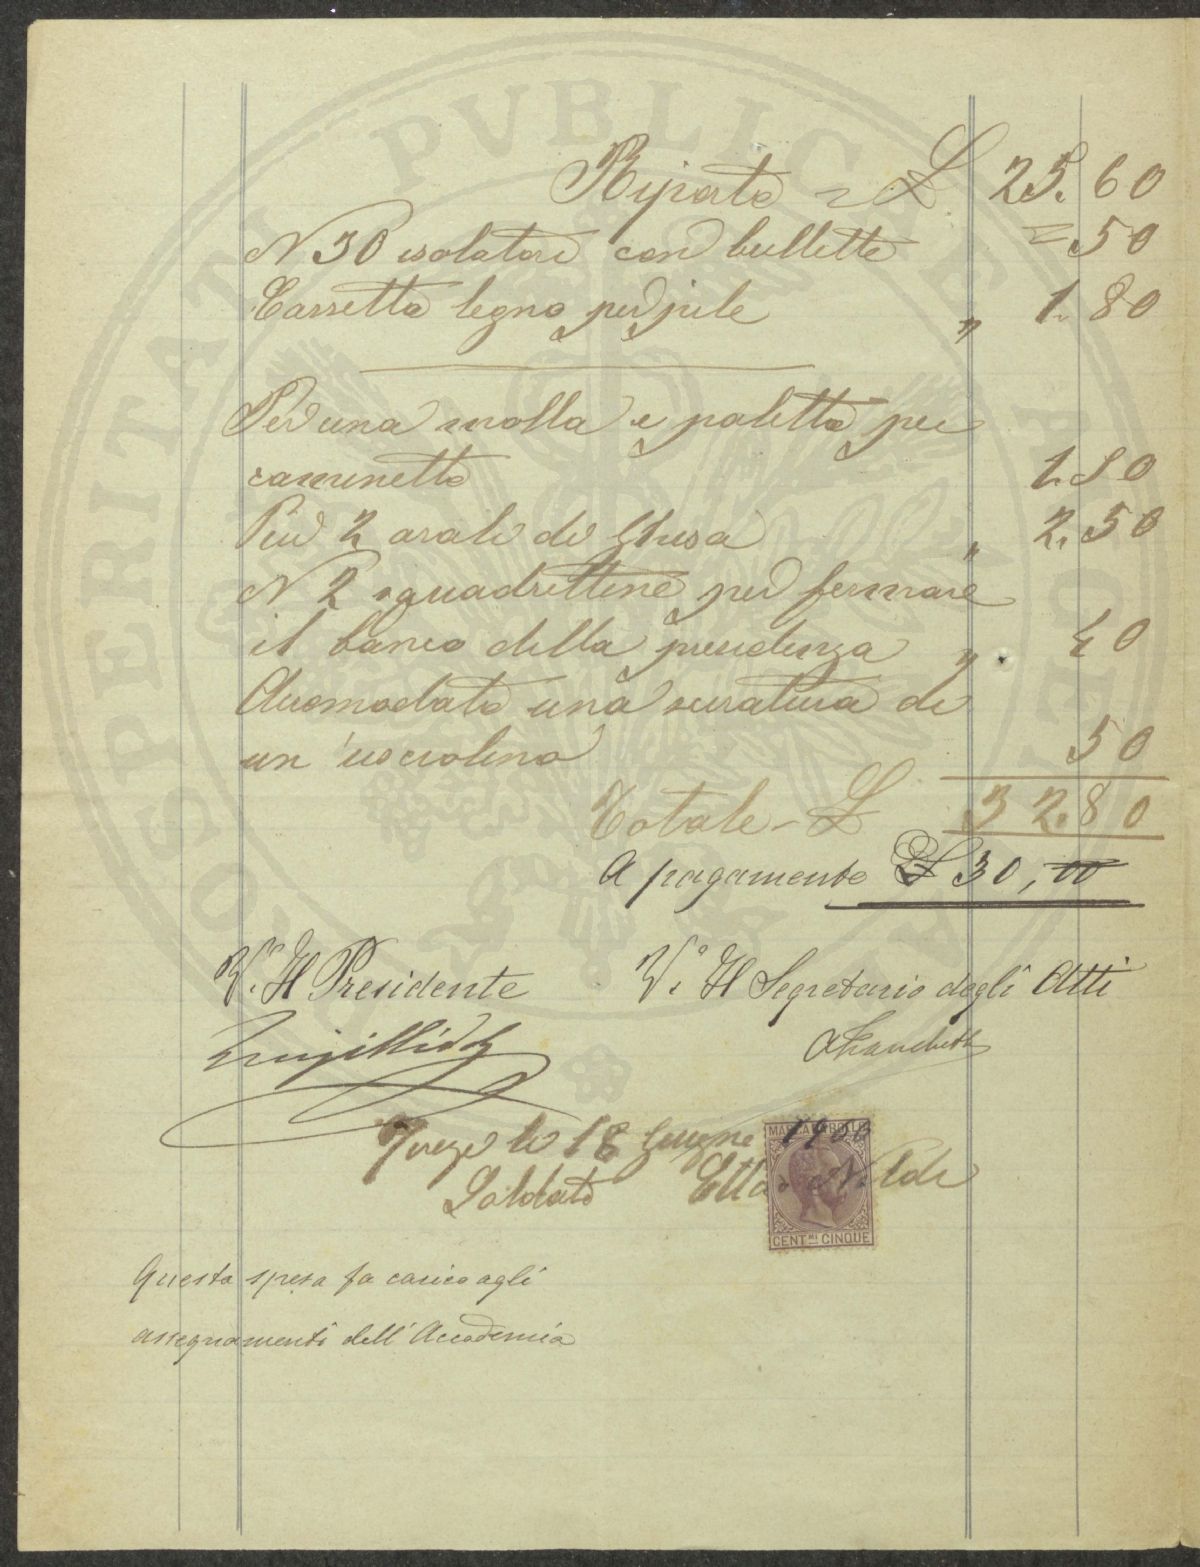 Riporto = L 25.60
N 30 isolatori con bullette = 50
Cassetta legno per pile " 1.80
Per una molla e paletta per
caminetto 1.50
Più 2 arale di Ghisa " 2.50
N 2 squadrettine per fermare
il banco della presidenza " . 40
Accomodato una serratura di
un usciolino 50
Totale - L 32.80
A pagamento L 30,00
V.° Il Presidente
V.° Il Segretario degli Atti
A Franchetti
li 18 Giugno 1900
MARCA DA BOLLO
Saldato
CENT.MI CINQUE
Questa spesa fa carico agli
assegnamenti dell'Accademia
PROSPERITATI PVBLICAE AVGENDAE